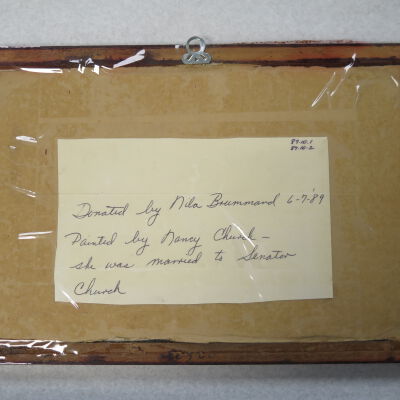 89.10.1
89.10.2
Donated by Nila Brummand 6-7-'89
Painted by Nancy Church -
she was married to Senator
Church